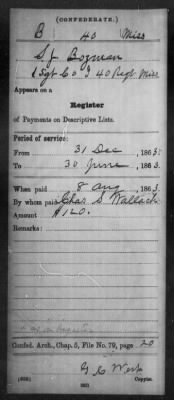 (CONFEDERATE.)
B 40 Miss
S J Bozman
1 Sgt Co I 40 Regt Miss
Appears on a
Register
of Payments on Descriptive Lists.
Period of service:
From 31 Dec, 1863.
To 30 June, 1863.
When paid 8 Aug, 1863.
By whom paid Chas S Wallach
Amount $120.
Remarks:
Confed. Arch., Chap. 5, File No. 79, page 20
Copyist.